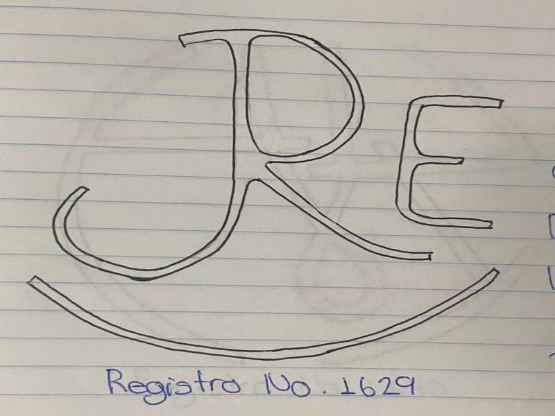 JRE
Registro No. 1629